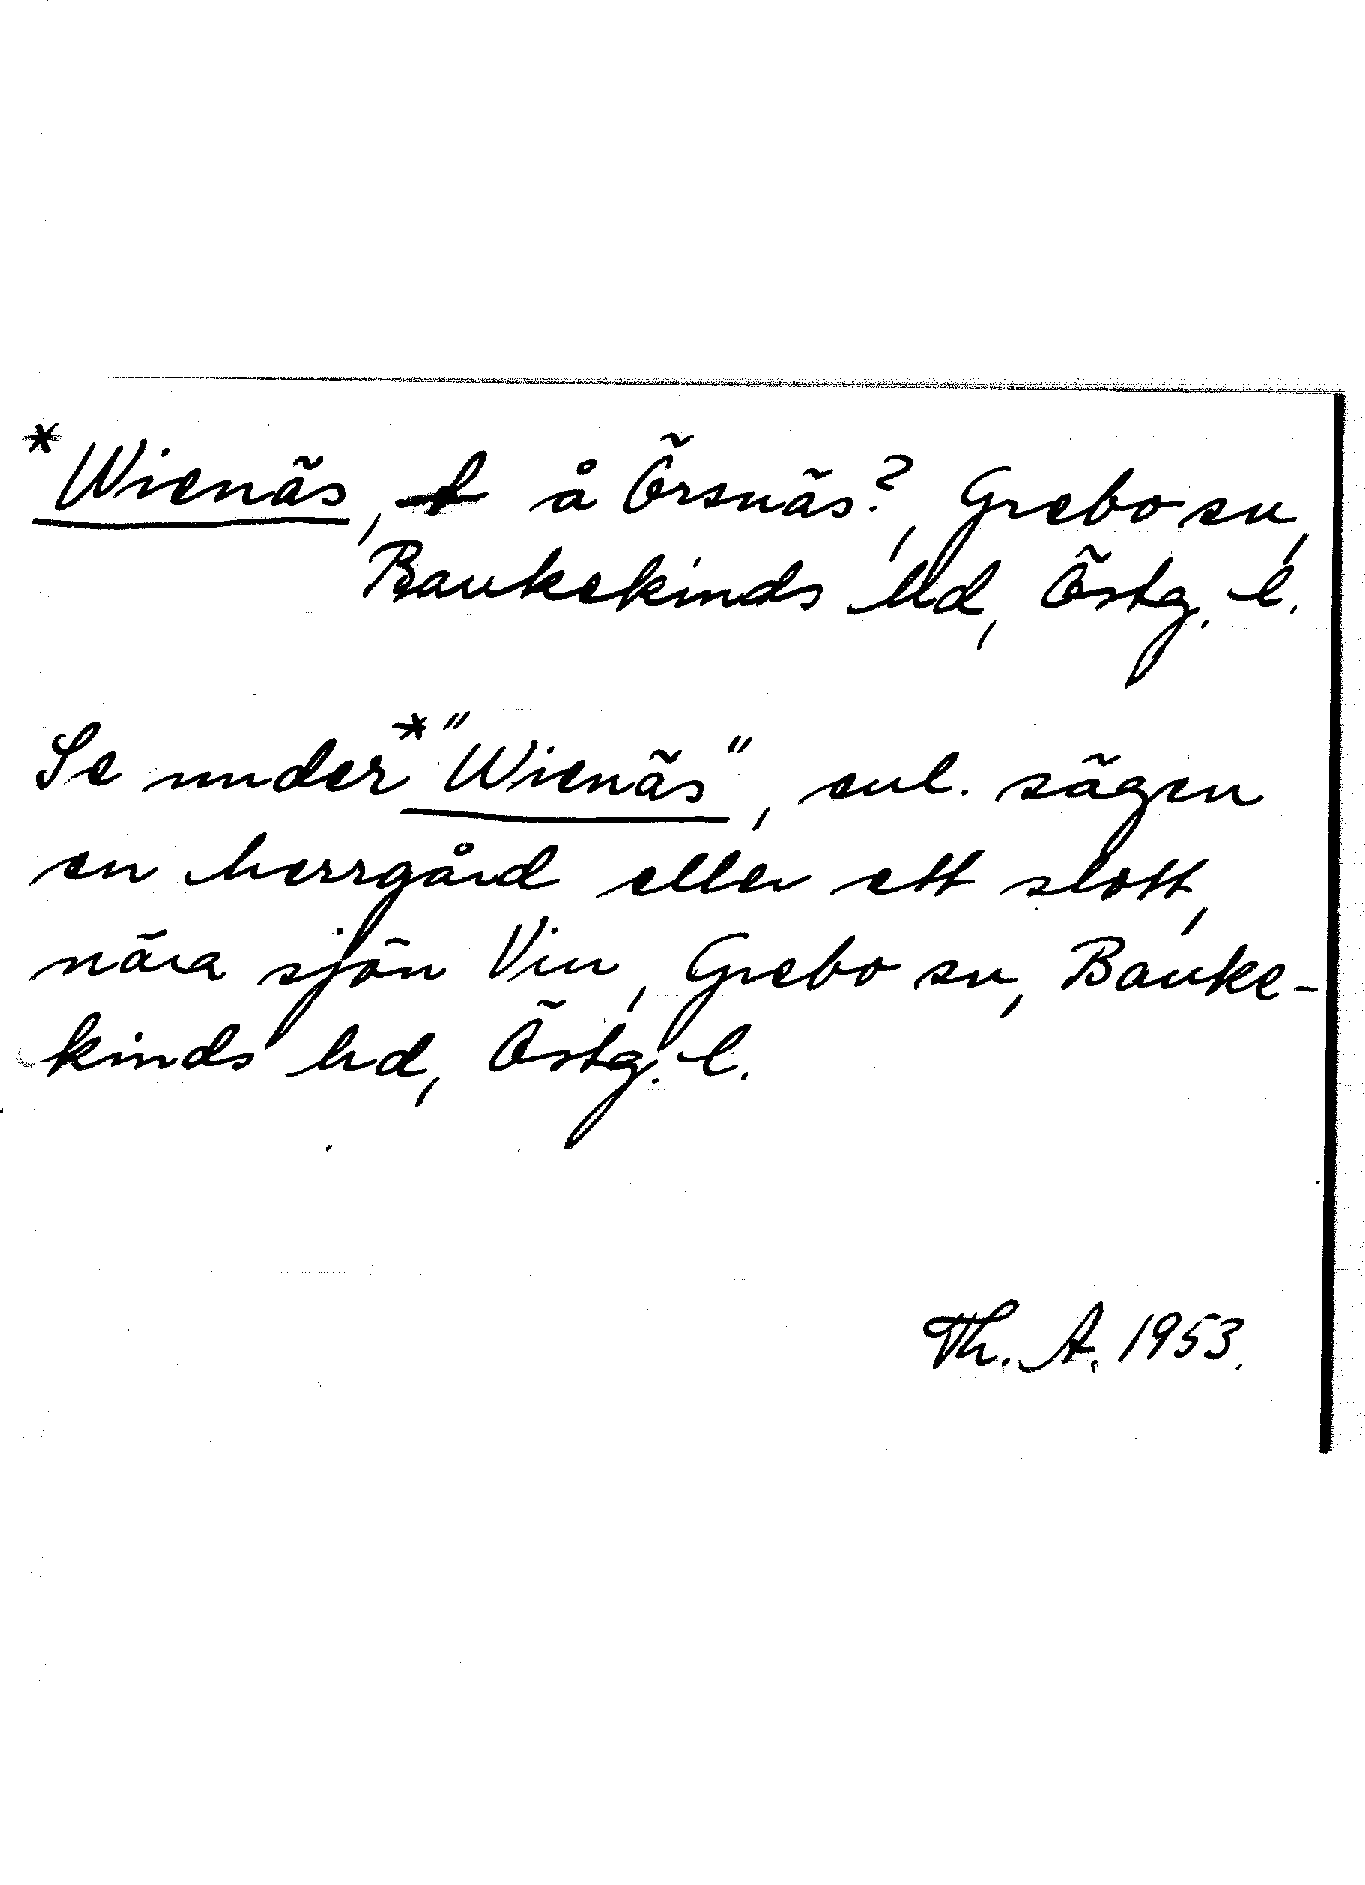 *Wienäs, å Örsnäs?, Grebo sn,
Bankekinds hd, Östg. l.
Se under *"Wienäs", enl. sägen
en herrgård eller ett slott,
nära sjön Vin, Grebo sn, Banke-
kinds hd, Östg. l.
Th. A. 1953.